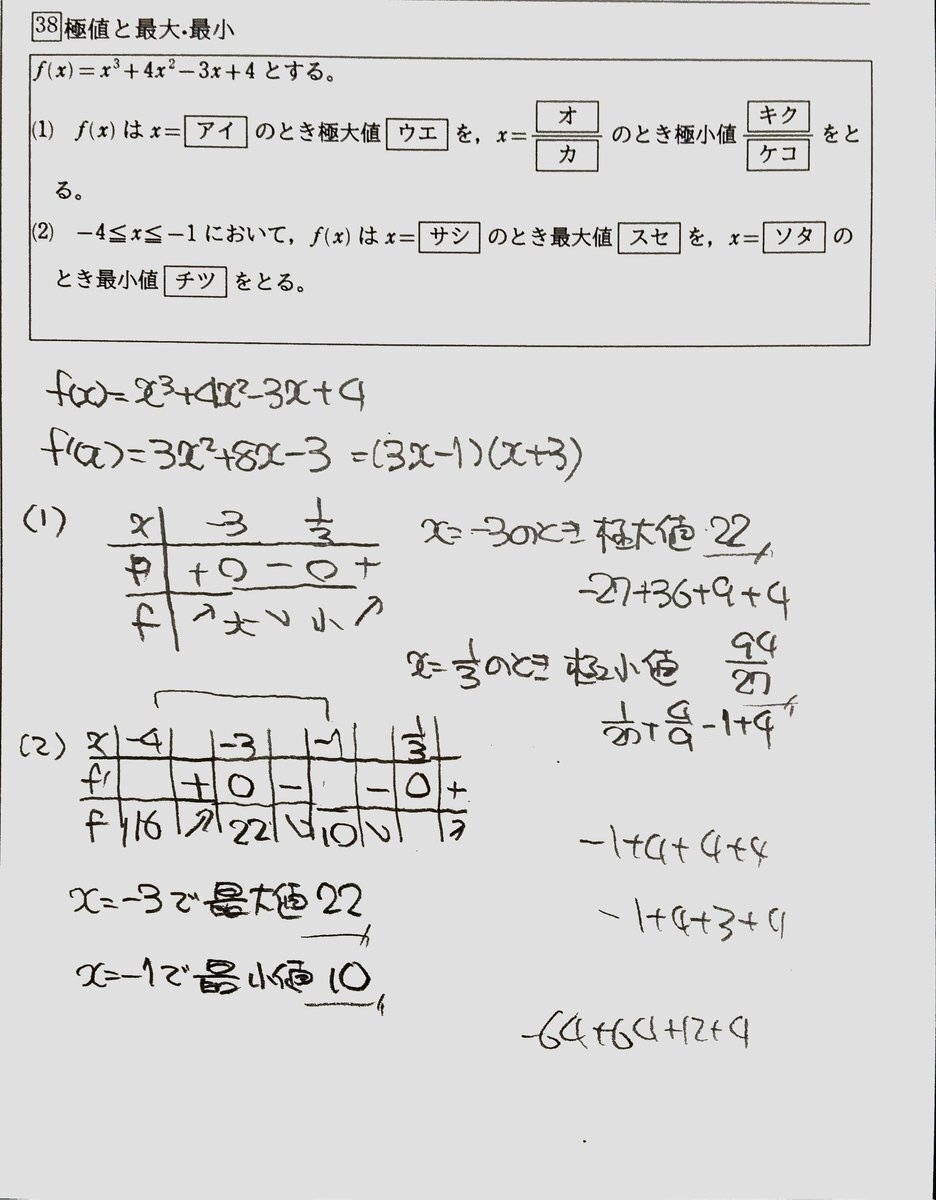 38 極値と最大・最小
f(x)=x³+4x²-3x+4 とする。
(1) f(x) は x= アイ のとき極大値 ウエ を, x= オ/カ のとき極小値 キク/ケコ をと
る。
(2) -4≦x≦-1 において, f(x) は x= サシ のとき最大値 スセ を, x= ソタ の
とき最小値 チツ をとる。
f(x)=x³+4x²-3x+4
f'(x)=3x²+8x-3=(3x-1)(x+3)
(1)
x -3 1/3
+ 0 - 0 +
f ↗ 大 ↘ 小 ↗
x=-3のとき 極大値 22
-27+36+9+4
x=1/3のとき 極小値 94/27
1/27+4/9-1+4
(2)
x -4 -3 -1 1/3
f' + 0 - - 0 +
f 16 ↗ 22 ↘ 10 ↘ ↗
x=-3で最大値 22
x=-1で最小値 10
-1+4+4+4
-1+4+3+4
-64+64+12+4